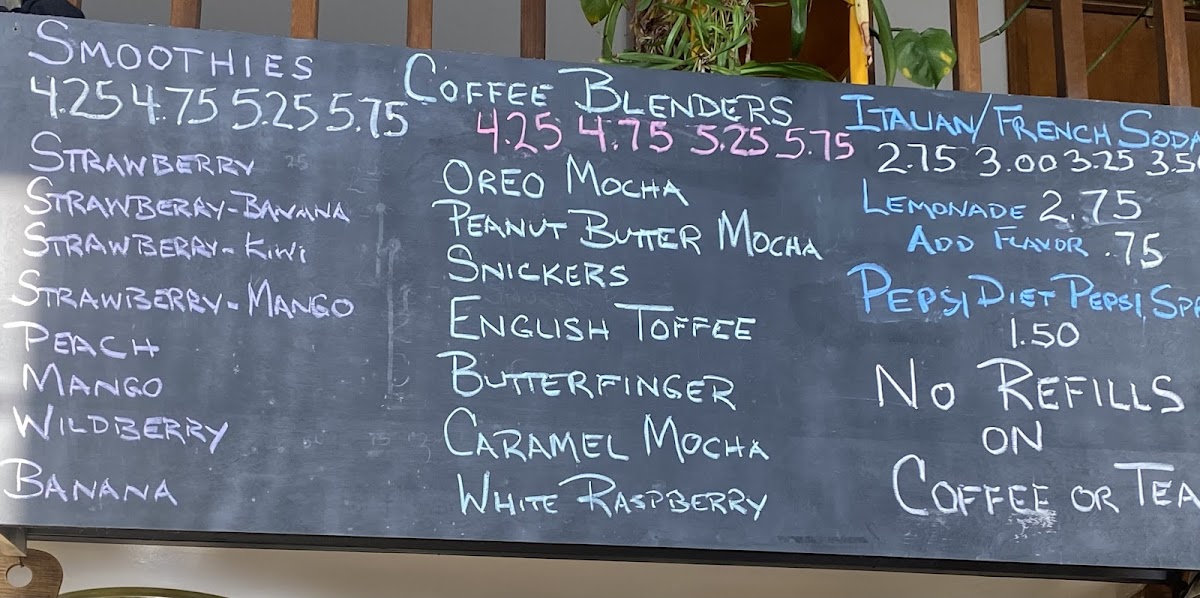 SMOOTHIES
4.25 4.75 5.25 5.75
STRAWBERRY
STRAWBERRY-BANANA
STRAWBERRY-KIWI
STRAWBERRY-MANGO
PEACH
MANGO
WILDBERRY
BANANA
COFFEE BLENDERS
4.25 4.75 5.25 5.75
OREO MOCHA
PEANUT BUTTER MOCHA
SNICKERS
ENGLISH TOFFEE
BUTTERFINGER
CARAMEL MOCHA
WHITE RASPBERRY
ITALIAN/FRENCH SODA
2.75 3.00 3.25 3.50
LEMONADE 2.75
ADD FLAVOR .75
PEPSI DIET PEPSI
1.50
NO REFILLS
ON
COFFEE OR TEA